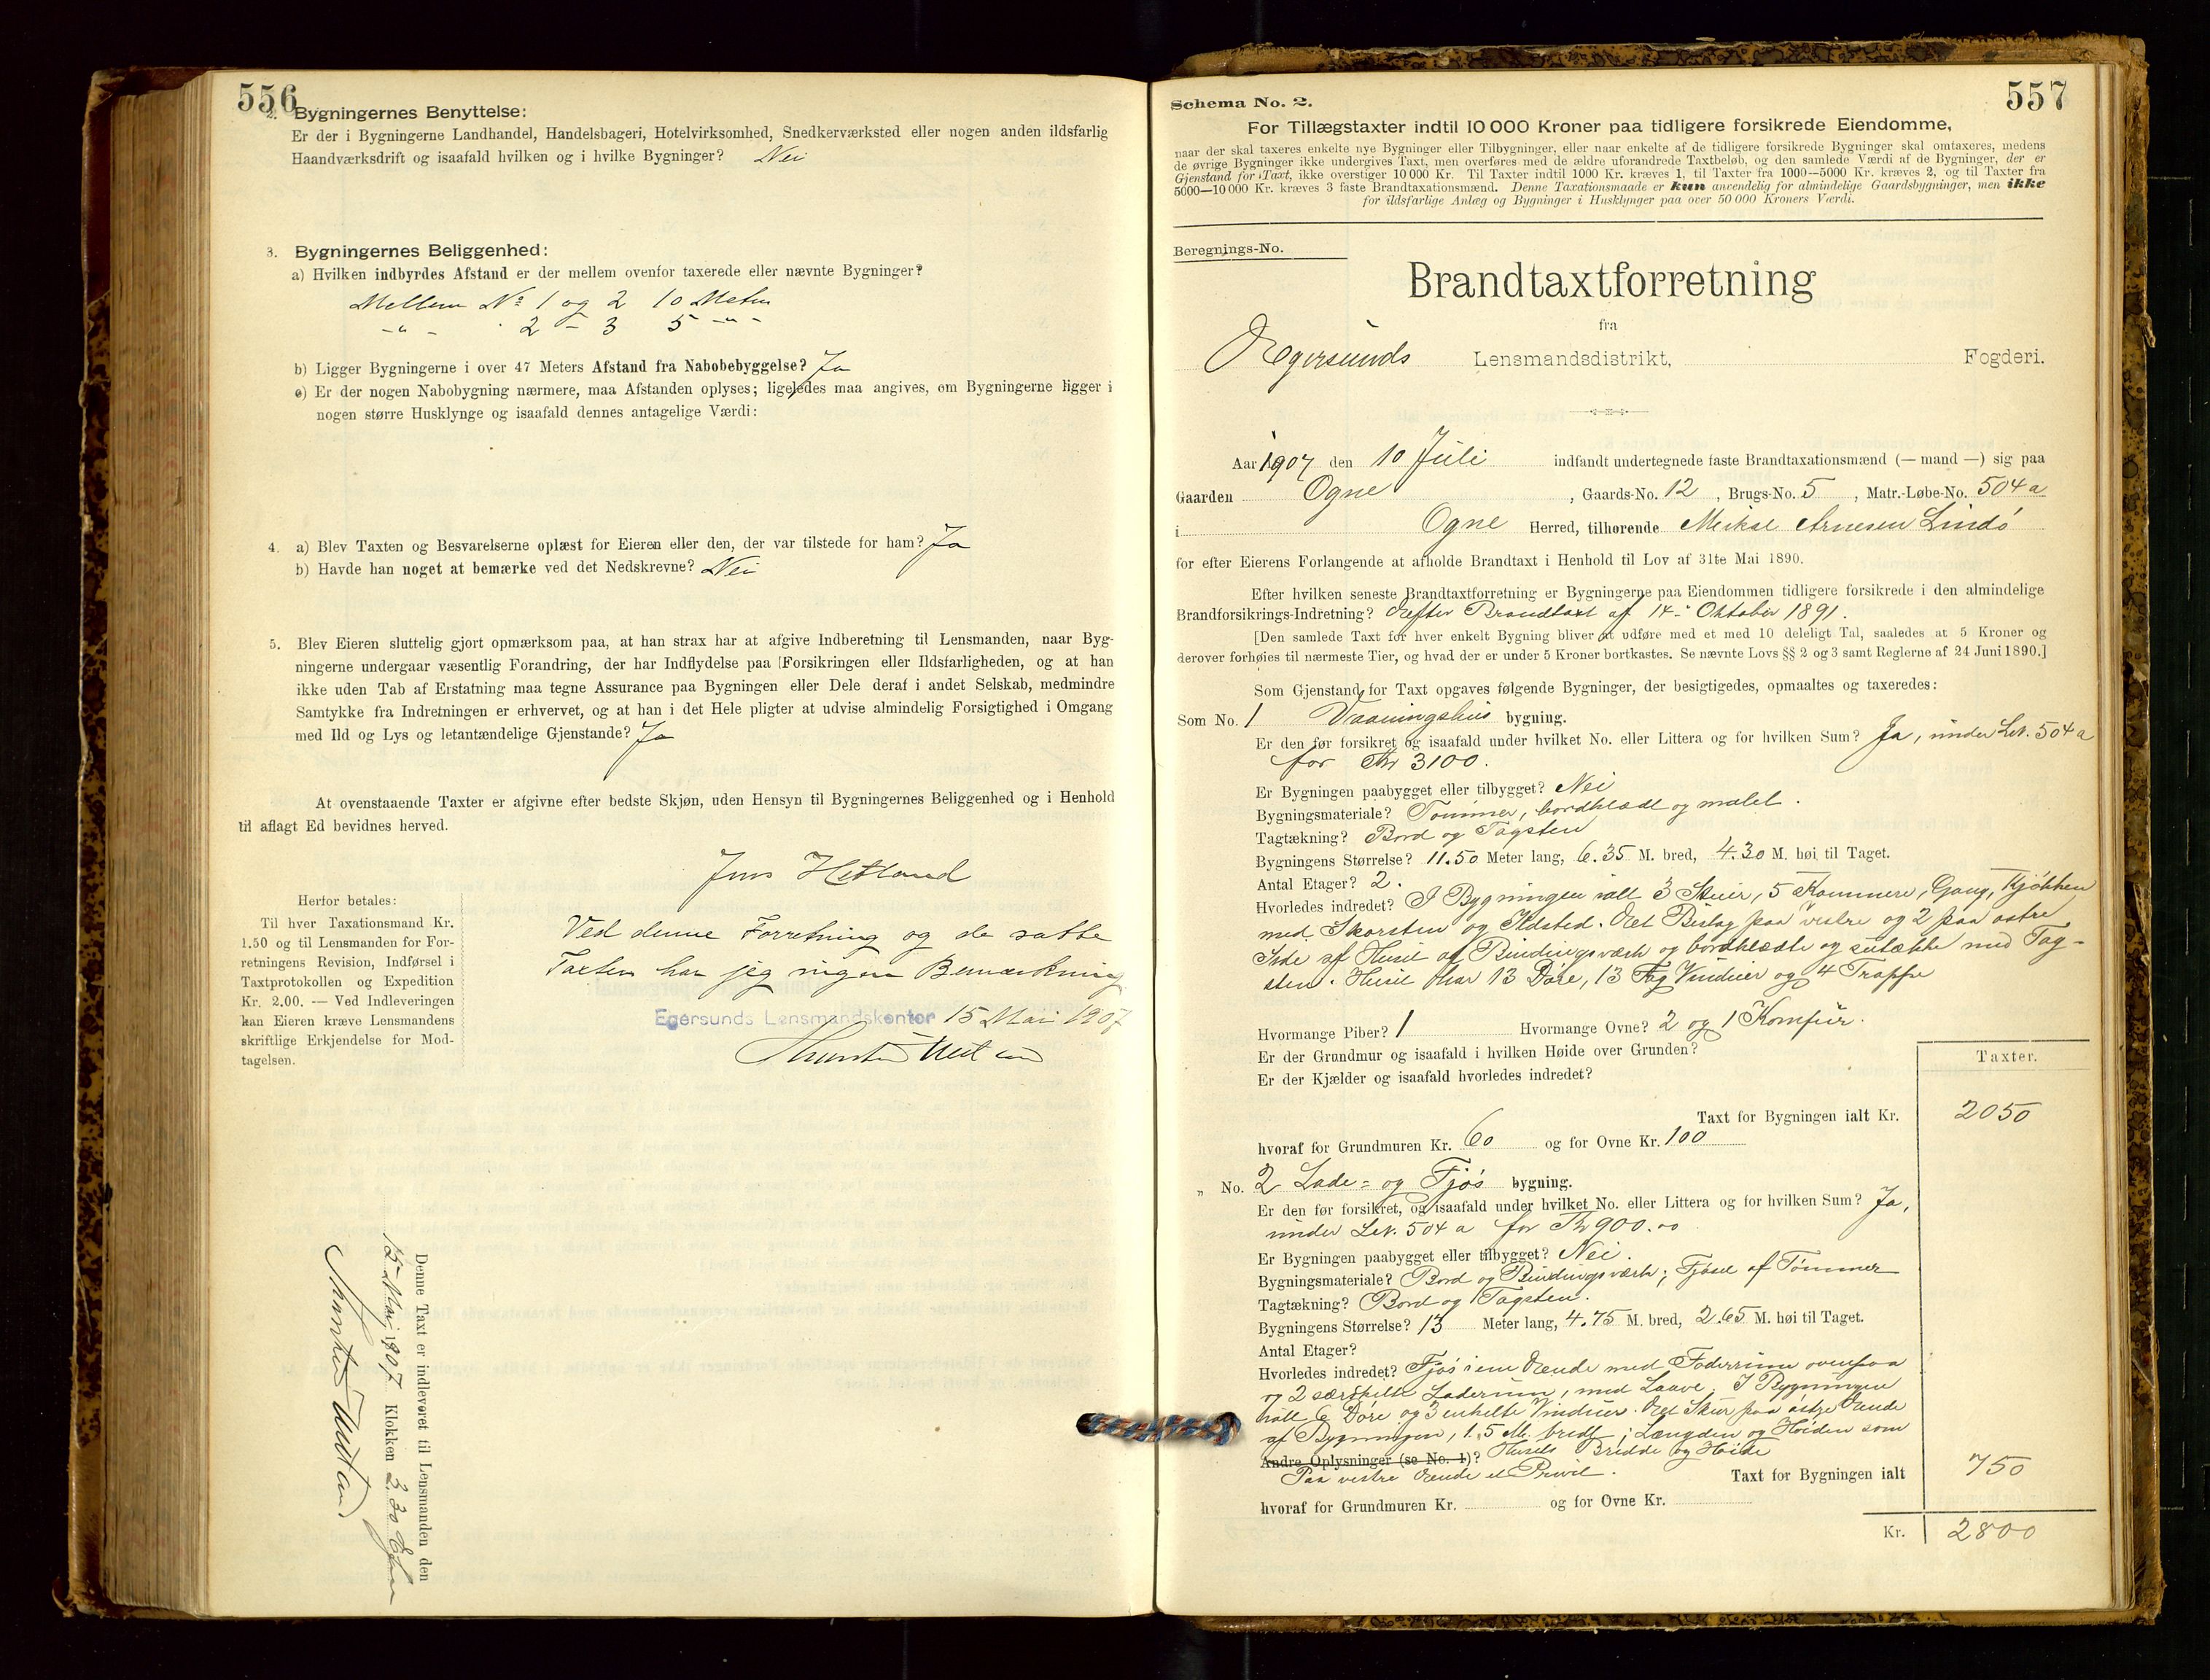 556
2. Bygningernes Benyttelse:
Er der i Bygningerne Landhandel, Handelsbageri, Hotelvirksomhed, Snedkerværksted eller nogen anden ildsfarlig
Haandværksdrift og isaafald hvilken og i hvilke Bygninger? Nei
3. Bygningernes Beliggenhed:
a) Hvilken indbyrdes Afstand er der mellem ovenfor taxerede eller nævnte Bygninger?
Mellem No 1 og 2 10 Meter
-"- 2 - 3 5 -"-
b) Ligger Bygningerne i over 47 Meters Afstand fra Nabobebyggelse? Ja
c) Er der nogen Nabobygning nærmere, maa Afstanden oplyses; ligeledes maa angives, om Bygningerne ligger i
nogen større Husklynge og isaafald dennes antagelige Værdi:
4. a) Blev Taxten og Besvarelserne oplæst for Eieren eller den, der var tilstede for ham? Ja
b) Havde han noget at bemærke ved det Nedskrevne? Nei
5. Blev Eieren sluttelig gjort opmærksom paa, at han strax har at afgive Indberetning til Lensmanden, naar Byg-
ningerne undergaar væsentlig Forandring, der har Indflydelse paa Forsikringen eller Ildsfarligheden, og at han
ikke uden Tab af Erstatning maa tegne Assurance paa Bygningen eller Dele deraf i andet Selskab, medmindre
Samtykke fra Indretningen er erhvervet, og at han i det Hele pligter at udvise almindelig Forsigtighed i Omgang
med Ild og Lys og letantændelige Gjenstande? Ja
At ovenstaaende Taxter er afgivne efter bedste Skjøn, uden Hensyn til Bygningernes Beliggenhed og i Henhold
til aflagt Ed bevidnes herved.
Jens Hetland
Herfor betales:
Til hver Taxationsmand Kr.
1.50 og til Lensmanden for For-
retningens Revision, Indførsel i
Taxtprotokollen og Expedition
Kr. 2.00. — Ved Indleveringen
kan Eieren kræve Lensmandens
skriftlige Erkjendelse for Mod-
tagelsen.
Ved denne Forretning og de satte
Taxter har jeg ingen Bemærkning
Egersunds Lensmandskontor 15 Mai 1907
Denne Taxt er indleveret til Lensmanden den
15 Mai 1907 Klokken 3.30 Efm
Schema No. 2.
557
For Tillægstaxter indtil 10 000 Kroner paa tidligere forsikrede Eiendomme,
naar der skal taxeres enkelte nye Bygninger eller Tilbygninger, eller naar enkelte af de tidligere forsikrede Bygninger skal omtaxeres, medens
de øvrige Bygninger ikke undergives Taxt, men overføres med de ældre uforandrede Taxtbeløb, og den samlede Værdi af de Bygninger, der er
Gjenstand for Taxt, ikke overstiger 10 000 Kr. Til Taxter indtil 1000 Kr. kræves 1, til Taxter fra 1000—5000 Kr. kræves 2, og til Taxter fra
5000—10 000 Kr. kræves 3 faste Brandtaxationsmænd. Denne Taxationsmaade er kun anvendelig for almindelige Gaardsbygninger, men ikke
for ildsfarlige Anlæg og Bygninger i Husklynger paa over 50 000 Kroners Værdi.
Beregnings-No.
Brandtaxtforretning
fra
Egersunds Lensmandsdistrikt, Fogderi.
Aar 1907 den 10 Juli indfandt undertegnede faste Brandtaxationsmænd (— mand —) sig paa
Gaarden Ogne, Gaards-No. 12, Brugs-No. 5, Matr.-Løbe-No. 504 a
i Ogne Herred, tilhørende Mikal Arnesen Lindö
for efter Eierens Forlangende at afholde Brandtaxt i Henhold til Lov af 31te Mai 1890.
Efter hvilken seneste Brandtaxtforretning er Bygningerne paa Eiendommen tidligere forsikrede i den almindelige
Brandforsikrings-Indretning? Efter Brandtaxt af 14-" Oktober 1891.
[Den samlede Taxt for hver enkelt Bygning bliver at udføre med et med 10 deleligt Tal, saaledes at 5 Kroner og
derover forhøies til nærmeste Tier, og hvad der er under 5 Kroner bortkastes. Se nævnte Lovs §§ 2 og 3 samt Reglerne af 24 Juni 1890.]
Som Gjenstand for Taxt opgaves følgende Bygninger, der besigtigedes, opmaaltes og taxeredes:
Som No. 1 Vaaningshus bygning.
Er den før forsikret og isaafald under hvilket No. eller Littera og for hvilken Sum? Ja, under Lit. 504 a
for Kr 3100.
Er Bygningen paabygget eller tilbygget? Nei
Bygningsmateriale? Tømmer, bordklædt og malet.
Tagtækning? Bord og Tagsten
Bygningens Størrelse? 11.50 Meter lang, 6.35 M. bred, 4.30 M. høi til Taget.
Antal Etager? 2.
Hvorledes indredet? I Bygningen ialt 3 Stuer, 5 Kammere, Gang, Kjökken
med Skorsten og Ildsted. Et Bislag paa vestre og 2 paa östre
Side af Huset af Bindingsværk og bordklædte og tække med Tag-
sten. Huset har 13 Döre, 13 Fag Vinduer og 4 Trappe
Hvormange Piber? 1 Hvormange Ovne? 2 og 1 Komfur.
Er der Grundmur og isaafald i hvilken Høide over Grunden?
Er der Kjælder og isaafald hvorledes indredet?
Taxter.
Taxt for Bygningen ialt Kr. 2050
hvoraf for Grundmuren Kr. 60 og for Ovne Kr. 100
" No. 2 Lade= og Fjös bygning.
Er den før forsikret, og isaafald under hvilket No. eller Littera og for hvilken Sum? Ja,
under Lit. 504 a for Kr 900.00
Er Bygningen paabygget eller tilbygget? Nei.
Bygningsmateriale? Bord og Bindingsværk; Fjöset af Tømmer
Tagtækning? Bord og Tagsten.
Bygningens Størrelse? 13 Meter lang, 4.75 M. bred, 2.65 M. høi til Taget.
Antal Etager?
Hvorledes indredet? Fjös i ene Ende med Foderrum ovenpaa
og 2 særskilte Laderum, med Laave. I Bygningen
ialt 6 Döre og 3 enkelte Vinduer. Et Skur paa östre Ende
af Bygningen, 1.5 M. bredt; Længden og Höiden som
Andre Oplysninger (se No. 1)? Husets Bredde og Höide
Paa vestre Ende et Privet. Taxt for Bygningen ialt 750
hvoraf for Grundmuren Kr. og for Ovne Kr.
Kr. 2800